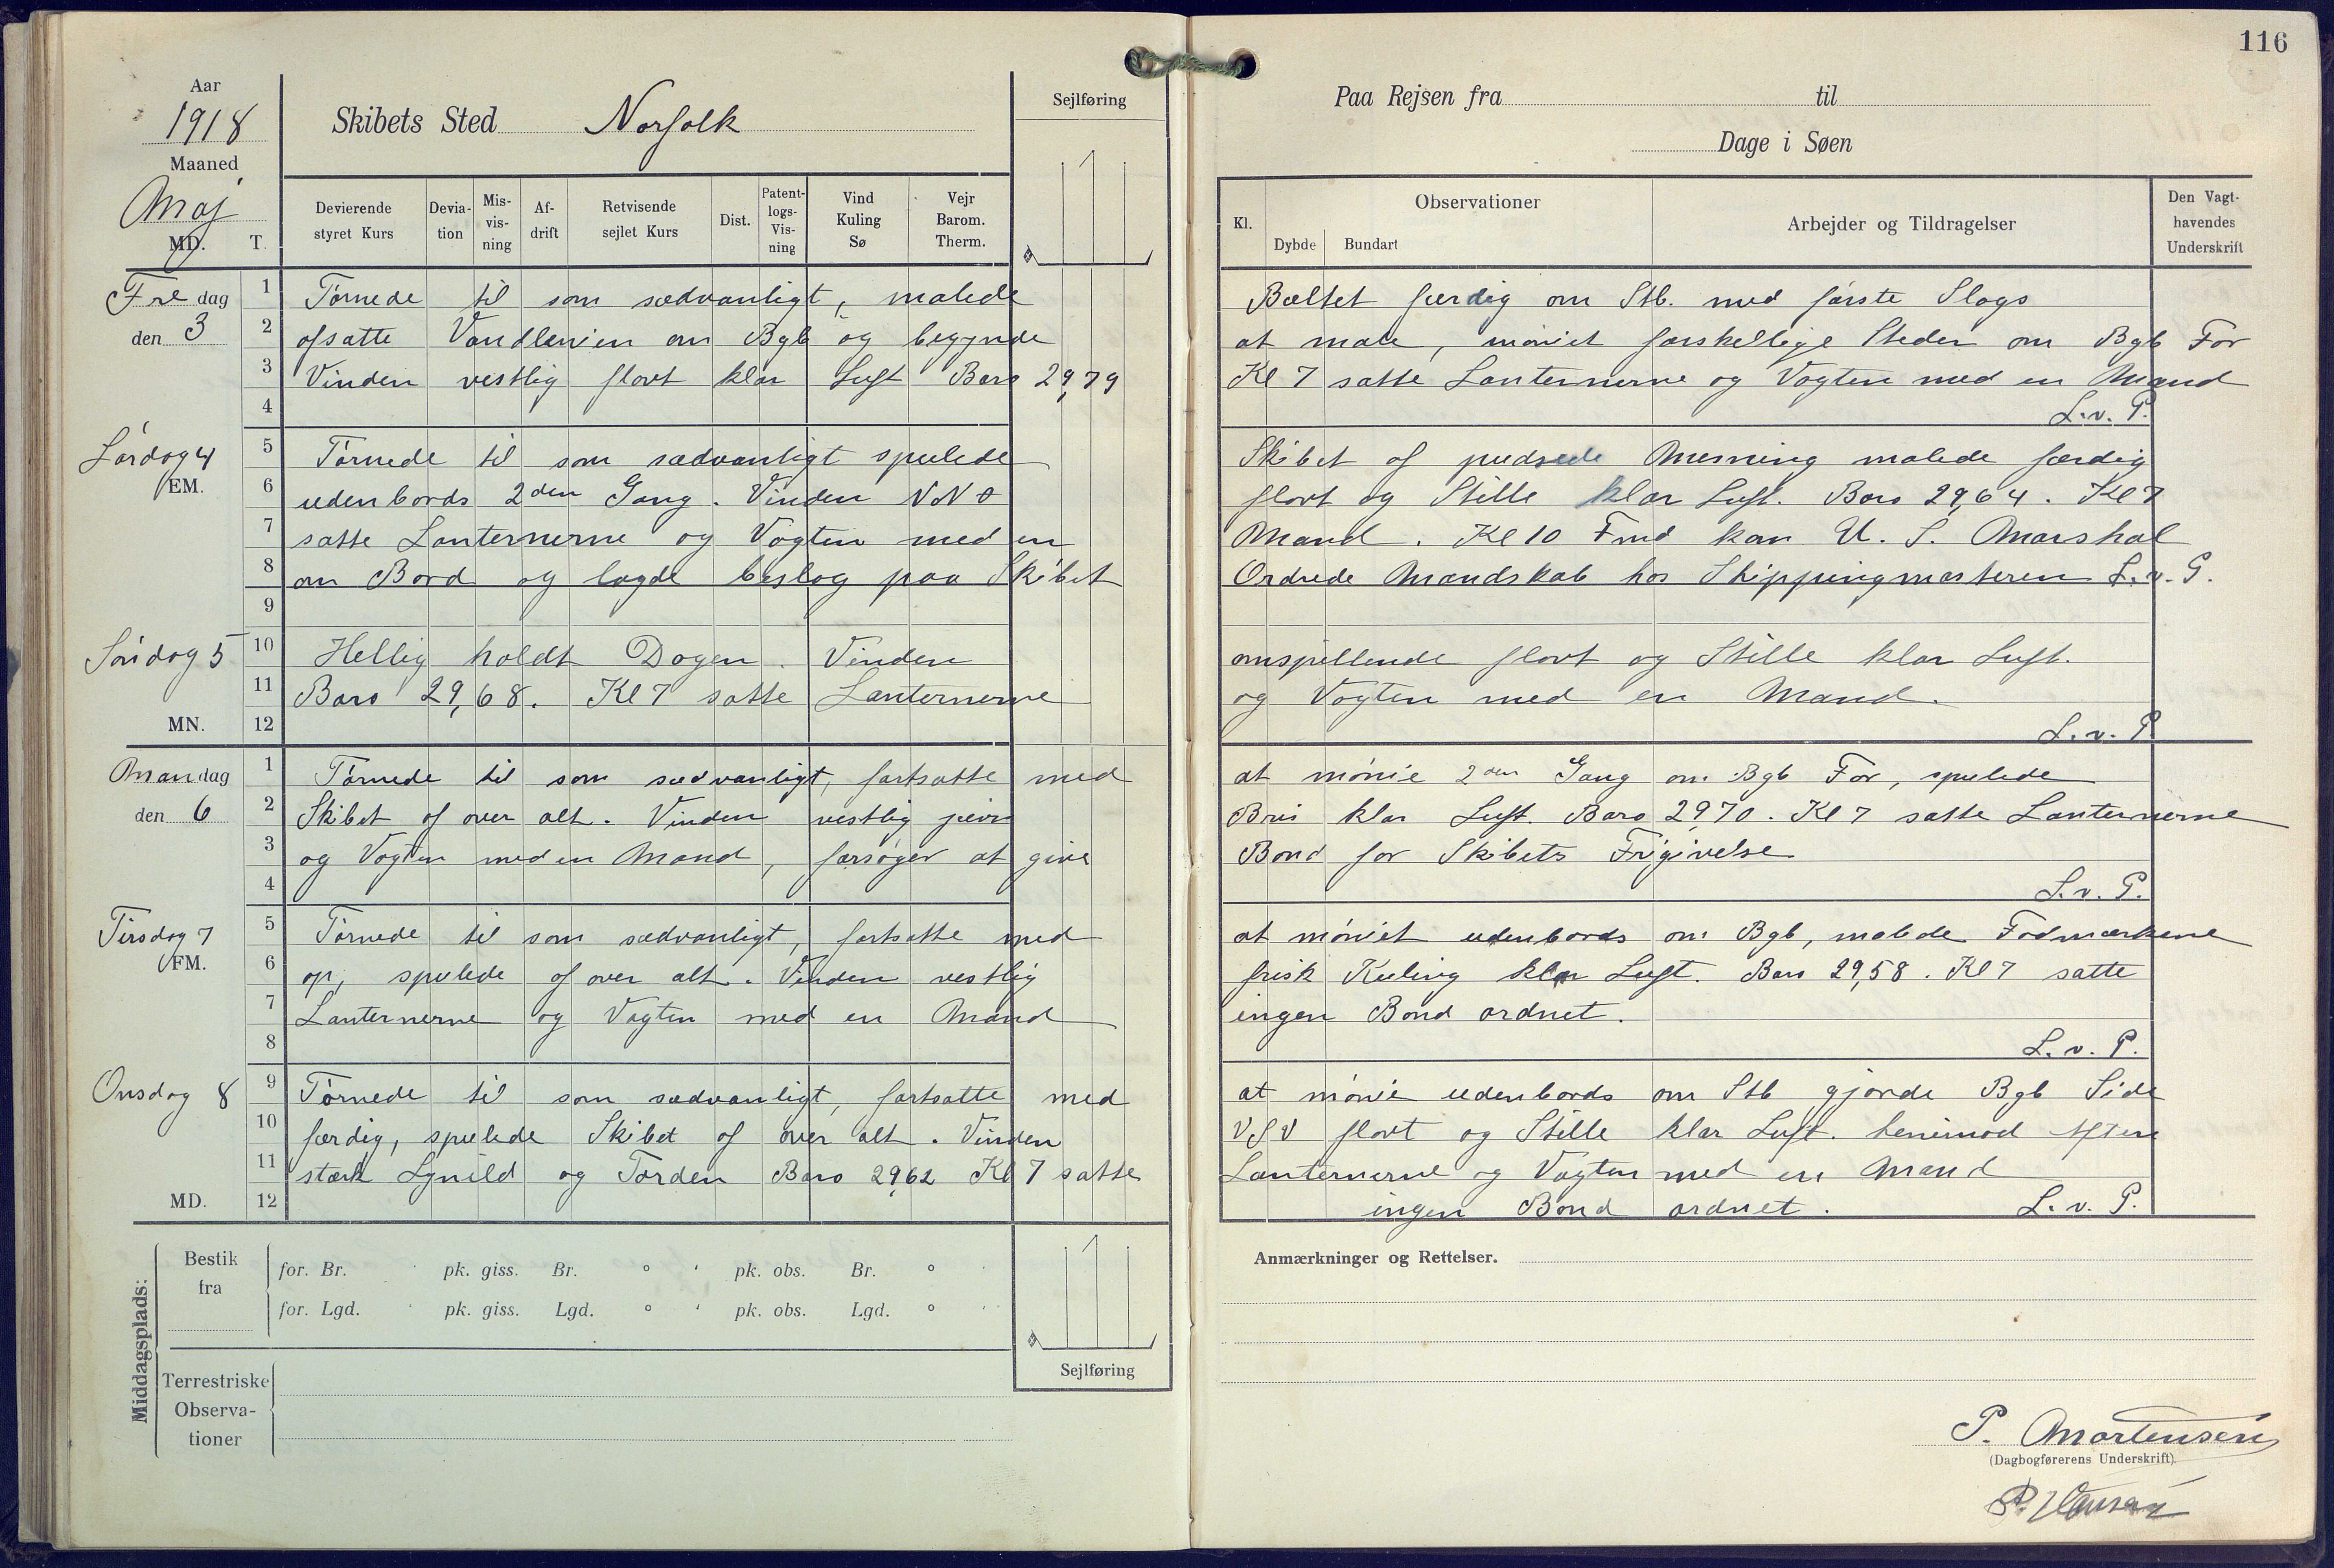 116
Aar
1918
Maaned
Maj
MD. T.
Skibets Sted Norfolk
Sejlføring
Paa Rejsen fra til
Dage i Søen
Devierende styret Kurs
Devia-tion
Mis-vis-ning
Af-drift
Retvisende sejlet Kurs
Dist.
Patent-logs-Vis-ning
Vind Kuling Sø
Vejr Barom. Therm.
Kl.
Observationer
Dybde Bundart
Arbejder og Tildragelser
Den Vagt-havendes Underskrift
Fredag den 3
1 Tørnede til som sædvanligt, malede Bæltet færdig om Stb. med første Slags
2 afsatte Vandlinien om Bgb og begynde at male, mønjet forskellige Steder om Bgb For
3 Vinden vestlig flovt klar Luft Baro 29,79 Kl 7 satte Lanternerne og Vagten med en Mand
4 L.v. P.
Lørdag 4
EM.
5 Tørnede til som sædvanligt spulede Skibet af pudsede Messing malede færdig
6 udenbords 2den Gang. Vinden NNO flovt og Stille klar Luft. Baro 29,64. Kl 7
7 satte Lanternerne og Vagten med en Mand. Kl 10 Fmd kom U. S. Marshal
8 om Bord og lagde beslag paa Skibet Ordrede Mandskab hos Shippingmasteren L.v. P.
9
Søndag 5
10 Hellig holdt Dagen. Vinden omspillende flovt og Stille klar Luft.
11 Baro 29,68. Kl 7 satte Lanternerne og Vagten med en Mand.
MN. 12 L.v. P
Mandag den 6
1 Tørnede til som sædvanligt, fortsatte med at mønje 2den Gang om Bgb For, spulede
2 Skibet af over alt. Vinden vestlig jævn Bris klar Luft. Baro 29,70. Kl 7 satte Lanternerne
3 og Vagten med en Mand, forsøger at give Bond for Skibets Frigivelse
4 L.v. P.
Tirsdag 7
FM.
5 Tørnede til som sædvanligt, fortsatte med at mønjet udenbords om Bgb, malede Fodmærkerne
6 op, spulede af over alt. Vinden vestlig frisk Kuling klar Luft. Baro 29,58. Kl 7 satte
7 Lanternerne og Vagten med en Mand ingen Bond ordnet.
8 L.v. P.
Onsdag 8
9 Tørnede til som sædvanligt, fortsatte med at mønje udenbords om Stb gjorde Bgb Side
10 færdig, spulede Skibet af over alt. Vinden VSV flovt og Stille klar Luft. henimod Aften
11 stærk Lynild og Torden Baro 29,62 Kl 7 satte Lanternerne og Vagten med en Mand
MD. 12 ingen Bond ordnet. L.v. P.
Middagsplads:
Bestik fra
for. Br. ' pk. giss. Br. ° ' pk. obs. Br. ° '
for. Lgd. ' pk. giss. Lgd. ° ' pk. obs. Lgd. ° '
Terrestriske Observa-tioner
Sejlføring
Anmærkninger og Rettelser.
P. Mortensen
(Dagbogførerens Underskrift).
P. Hansen